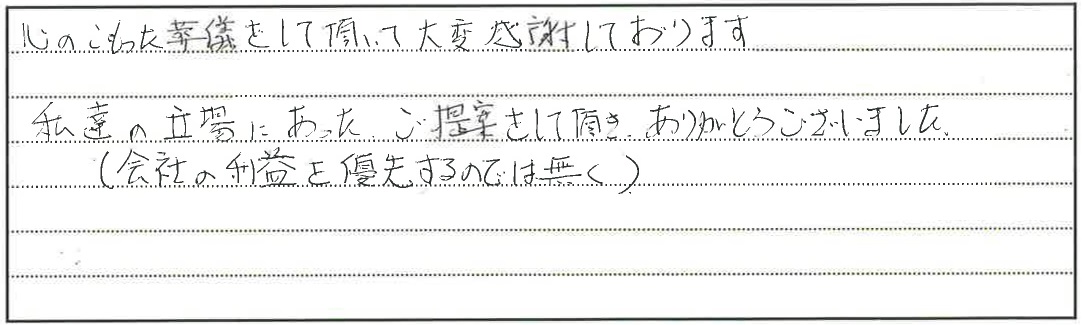 心のこもった葬儀をして頂いて大変感謝しております
私達の立場にあった、ご提案をして頂き、ありがとうございました。
(会社の利益を優先するのでは無く)